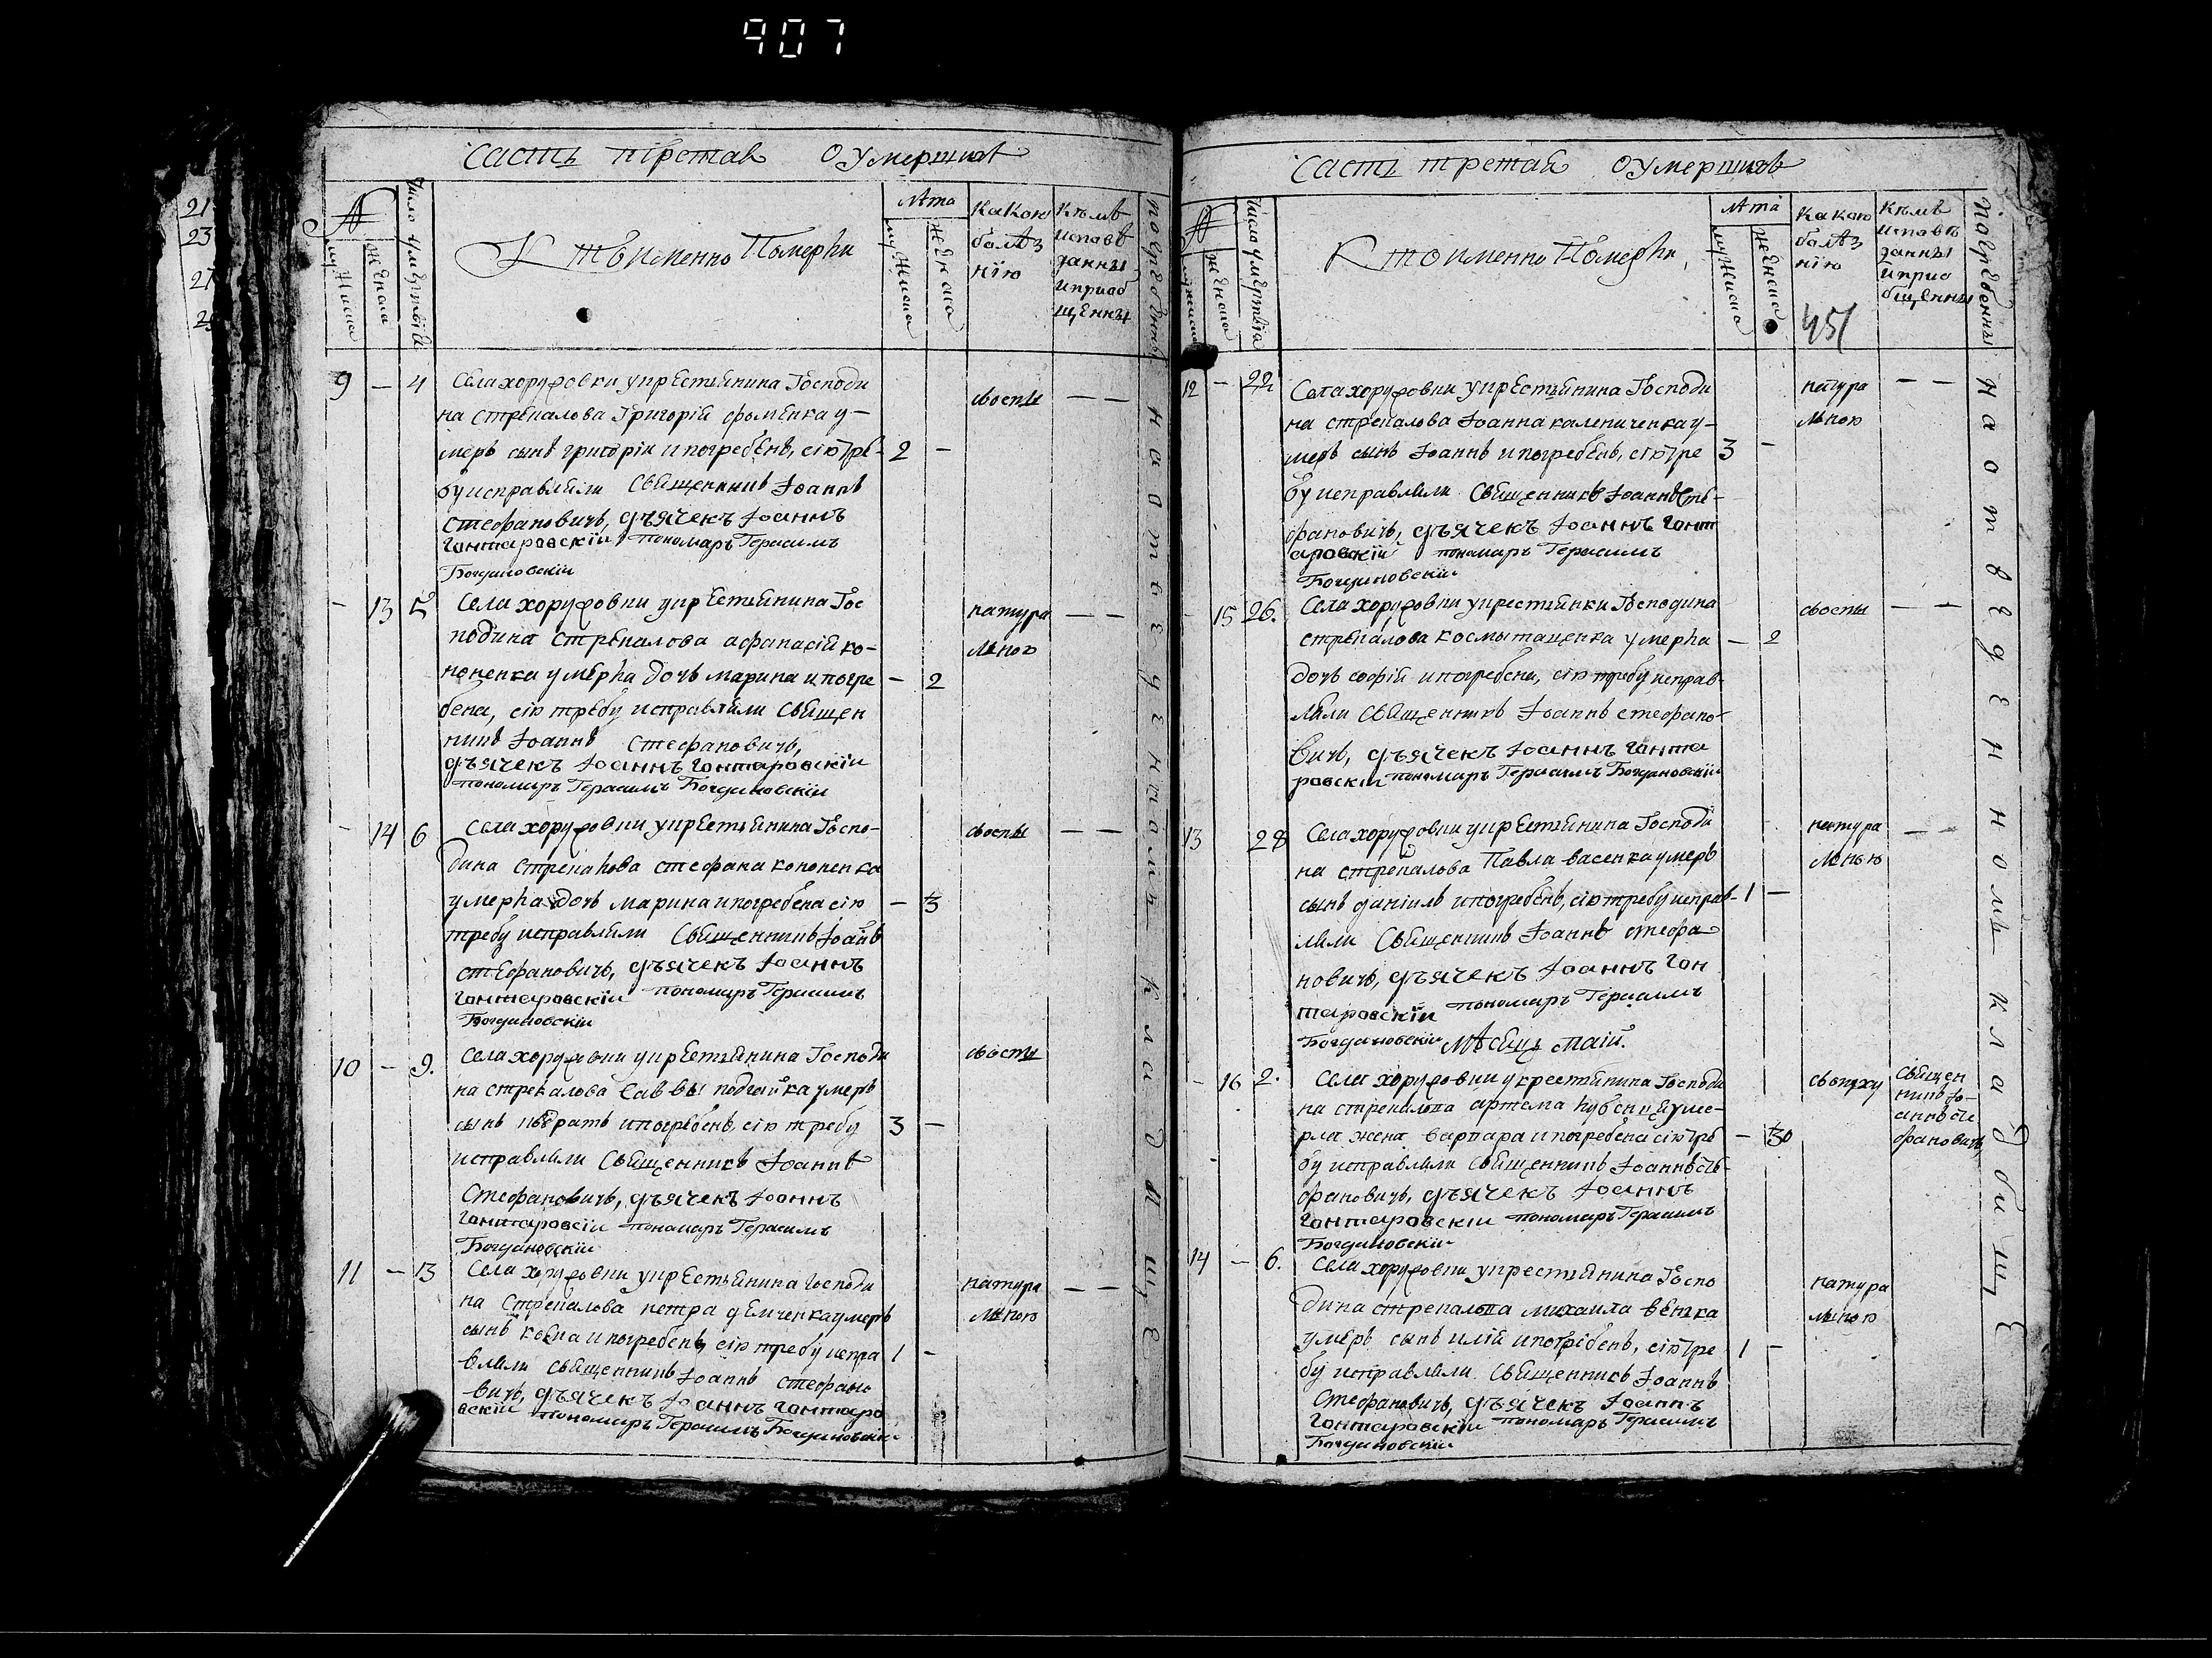 907
21
23
27
Часть третая О умершихъ
№
мужеска
женска
Число умертвія
Кто именно Померли
Лѣта
мужеска
женска
Какою
болѣз
нію
Кѣмъ
исповѣ
данны
и приоб
щенны
погребенны
на отведенномъ кладбищѣ
9 — 4 Села хоружовки у крестьянина Господи
на стрекалова Григорій фоменка у—
меръ сынъ григорій и погребенъ, сію тре- 2 —
бу исправляли Священникъ Іоаннъ
Стефановичъ, дъячекъ Іоаннъ
Гонтаровскіи пономаръ Герасимъ
Богдановскіи
воспы — —
— 13 5 Села хоружовки у крестьянина Гос
подина стрекалова афанасій ко-
ноненка умерла дочь марина и погре — 2
бена, сію требу исправляли Священ
никъ Іоаннъ Стефановичъ,
дъячекъ Іоаннъ Гонтаровскіи
пономаръ Герасимъ Богдановскіи
натура
лною — —
— 14 6 Села хоружовки у крестьянина Госпо-
дина стрекалова стефана кононенка
умерла дочь марина и погребена сію — 3
требу исправляли Священникъ Іоаннъ
стефановичъ, дъячекъ Іоаннъ
Гонтаровскіи пономаръ Герасимъ
Богдановскіи
воспы — —
10 — 9. Села хоружовки у крестьянина Господи
на стрекалова Саввы умеръ
сынъ и погребенъ, сію требу 3 —
исправляли Священникъ Іоаннъ
Стефановичъ, дъячекъ Іоаннъ
Гонтаровскіи пономаръ Герасимъ
Богдановскіи
воспы
11 — 13 Села хоружовки у крестьянина господи
на Стрекалова петра демченка умеръ
сынъ и погребенъ, сію требу испра 1 —
вляли священникъ Іоаннъ стефано
вичъ, дъячекъ Іоаннъ Гонтаро
вскіи пономаръ Герасимъ Богдановскіи
натура
лною — —
Часть третая О умершихъ
№
мужеска
женска
Число умертвія
Кто именно Померли
Лѣта
мужеска
женска
Какою
болѣз
нію
451
Кѣмъ
исповѣ
данны
и прио
бщенны
погребенны
на отведенномъ кладбищѣ
12 — 22 Села хоружовки у крестьянина Господи
на стрекалова Іоанна калениченка у-
меръ сынъ Іоаннъ и погребенъ, сію тре 3 —
бу исправляли Священникъ Іоаннъ Сте-
фановичъ, дъячекъ Іоаннъ Гонт
аровскіи пономаръ Герасимъ
Богдановскіи
натура
лною — —
— 15 26. Села хоружовки у крестьянки Господина
стрекалова космы тащенка умерла — 2
дочь софій и погребена, сію требу исправ-
ляли Священникъ Іоаннъ стефано-
вичъ, дъячекъ Іоаннъ Гонта
ровскіи пономаръ Герасимъ Богдановскіи
воспы — —
13 28 Села хоружовки у крестьянина Господи
на стрекалова Павла васенка умеръ
сынъ даніилъ и погребенъ, сію требу исправ- 1 —
ляли Священникъ Іоаннъ стефа
новичъ, дъячекъ Іоаннъ Гон
таровскіи пономаръ Герасимъ
Богдановскіи Мѣсяцъ маій.
натура
лною — —
— 16 2. Села хоружовки у крестьянина Господи
на стрекалова артема уме-
рла жена варвара и погребена сію тре — 30
бу исправляли Священникъ Іоаннъ Сте-
фановичъ, дъячекъ Іоаннъ
Гонтаровскіи пономаръ Герасимъ
Богдановскіи
Священ
никъ Іо-
аннъ Сте
фановичъ
14 — 6. Села хоружовки у крестьянина Госпо
дина стрекалова михаила
умеръ сынъ илій и погребенъ, сію тре 1 —
бу исправляли Священникъ Іоаннъ
Стефановичъ, дъячекъ Іоаннъ
Гонтаровскіи пономаръ Герасимъ
Богдановскіи
натура
лною